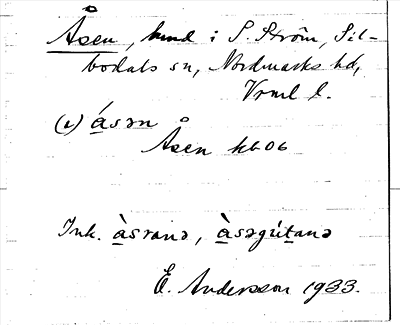 Åsen, hmd i S. Ström, Sil-
bodals sn, Nordmarks hd,
Vrml l.
(1) ásən
Åsen kb06
Ink. å̱̀sranə, å̱̀səgútanə
E. Andersson 1933.